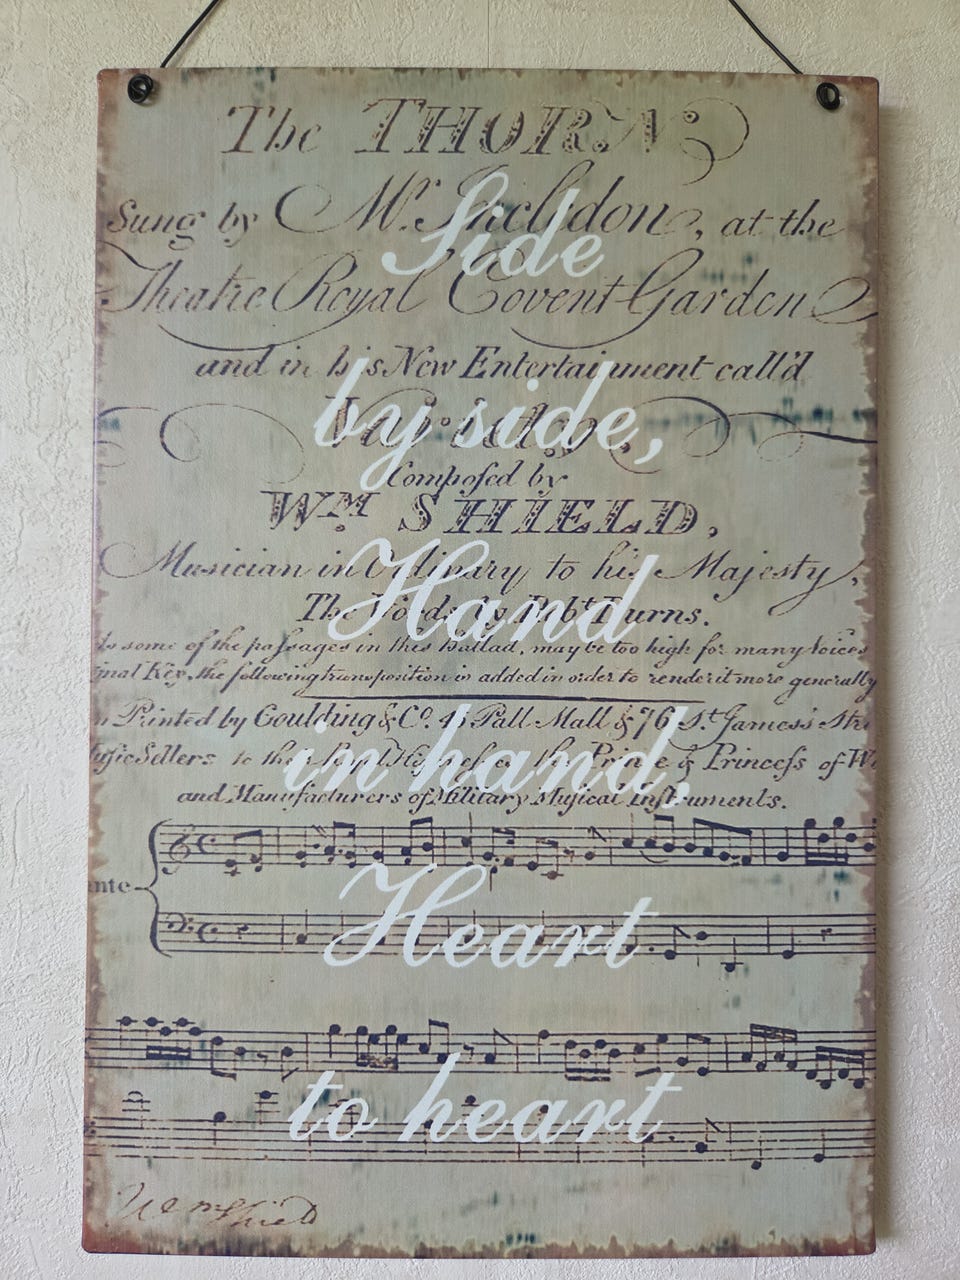 The THORN
Sung by Mr. Incledon, at the
Side
Theatre Royal Covent Garden
and in his New Entertainment call'd
by side,
Composed by
WM SHIELD,
Musician in Ordinary to his Majesty,
Hand
The Words by Robt Burns.
As some of the passages in this Ballad, may be too high for many Voices
inal Key, the following transposition is added in order to render it more generally
Printed by Goulding & Co. 45 Pall Mall & 76 St. James's Stre
in hand,
usic Sellers to the Royal Highnesses the Prince & Princess of W
and Manufacturers of Military Musical Instruments.
nte
Heart
to heart
Wm Shield